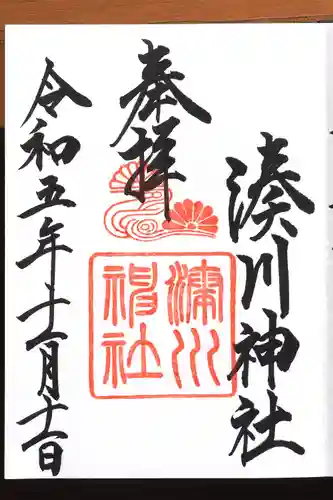 奉拝
湊川神社
湊川
神社
令和五年十二月十一日